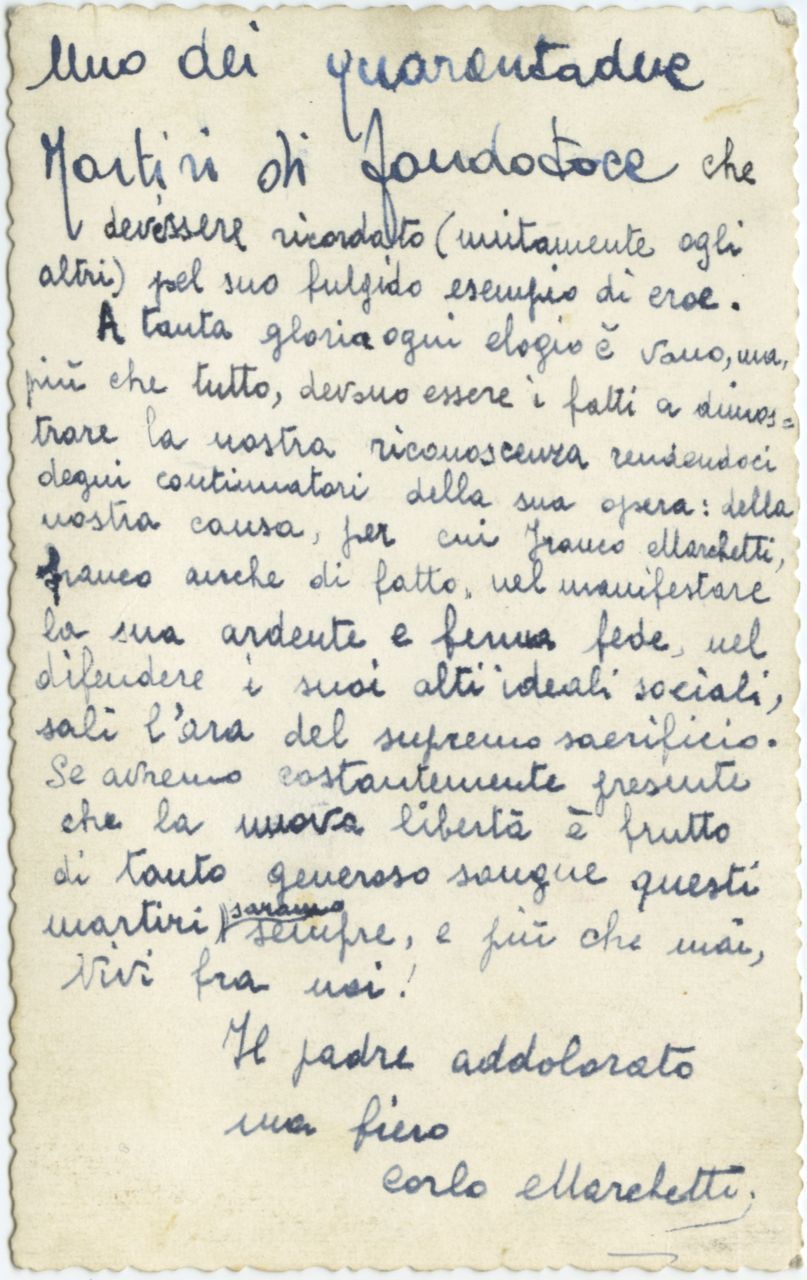 Uno dei quarantadue
Martiri di fondotoce che
dev'essere ricordato (unitamente agli
altri) pel suo fulgido esempio di eroe.
A tanta gloria ogni elogio è vano, ma,
più che tutto, devono essere i fatti a dimos=
trare la nostra riconoscenza rendendoci
degni continuatori della sua opera: della
nostra causa, per cui Franco Marchetti,
franco anche di fatto, nel manifestare
la sua ardente e ferma fede, nel
difendere i suoi alti ideali sociali,
salì l'ara del supremo sacrificio.
Se avremo costantemente presente
che la nuova libertà è frutto
di tanto generoso sangue questi
martiri saranno sempre, e più che mai,
vivi fra noi!
Il padre addolorato
ma fiero
Carlo Marchetti.